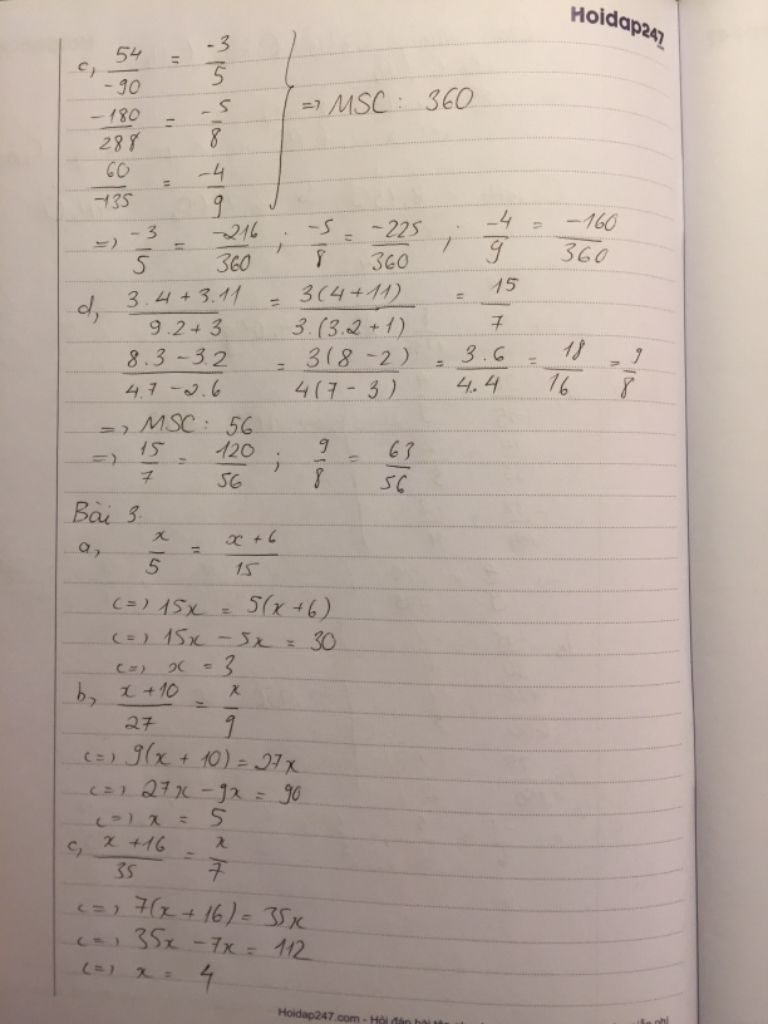 Hoidap247
c, 54/-90 = -3/5
-180/288 = -5/8 => MSC: 360
60/-135 = -4/9
=> -3/5 = -216/360 ; -5/8 = -225/360 ; -4/9 = -160/360
d, 3.4+3.11/9.2+3 = 3(4+11)/3.(3.2+1) = 15/7
8.3-3.2/4.7-2.6 = 3(8-2)/4(7-3) = 3.6/4.4 = 18/16 = 9/8
=> MSC: 56
=> 15/7 = 120/56 ; 9/8 = 63/56
Bài 3.
a, x/5 = x+6/15
<=> 15x = 5(x+6)
<=> 15x - 5x = 30
<=> x = 3
b, x+10/27 = x/9
<=> 9(x+10) = 27x
<=> 27x - 9x = 90
<=> x = 5
c, x+16/35 = x/7
<=> 7(x+16) = 35x
<=> 35x - 7x = 112
<=> x = 4
Hoidap247.com - Hỏi đáp bài